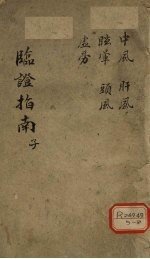 中風 肝風
眩暈 頭風
虛勞
臨證指南 子